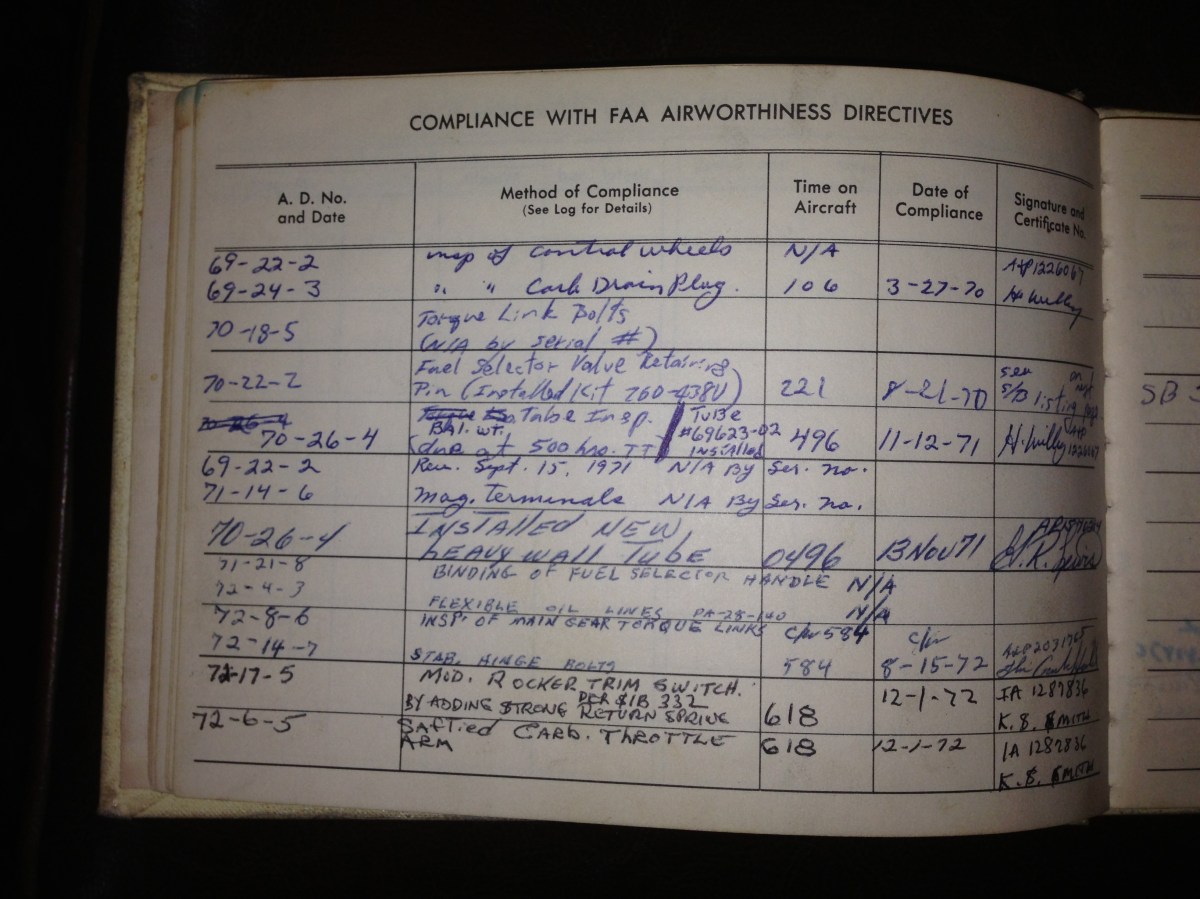 COMPLIANCE WITH FAA AIRWORTHINESS DIRECTIVES
A. D. No. and Date Method of Compliance (See Log for Details) Time on Aircraft Date of Compliance Signature and Certificate No.
69-22-2 insp of control wheels N/A
A+P 1226067
69-24-3 " " Carb Drain Plug. 106 3-27-70 H. Willby
Torque Link Bolts
70-18-5 (N/A by serial #)
Fuel Selector Valve Retaining
70-22-2 Pin (Installed Kit 760-438V) 221 8-21-70 see S/B listing on next page
Tube Insp. Tube
Bal. wt. #69623-02
70-26-4 (due at 500 hrs. TT) Installed 496 11-12-71 H. Willby A+P 1226067
69-22-2 Rev. Sept. 15, 1971 N/A By Ser. no.
71-14-6 Mag. Terminals N/A By Ser. no.
INSTALLED NEW
70-26-4 HEAVY WALL TUBE 0496 13 NOV 71
71-21-8 BINDING OF FUEL SELECTOR HANDLE N/A
72-4-3
FLEXIBLE OIL LINES PA-28-140 N/A
72-8-6 INSP. OF MAIN GEAR TORQUE LINKS C/W 584 C/W
72-14-7 STAB. HINGE BOLTS 584 8-15-72
72-17-5 MOD. ROCKER TRIM SWITCH. 12-1-72 IA 1287836
BY ADDING STRONG RETURN SPRING PER S/B 332 618 K.B. SMITH
72-6-5 SAFTIED CARB. THROTTLE ARM 618 12-1-72 IA 1287836
K.B. SMITH
SB